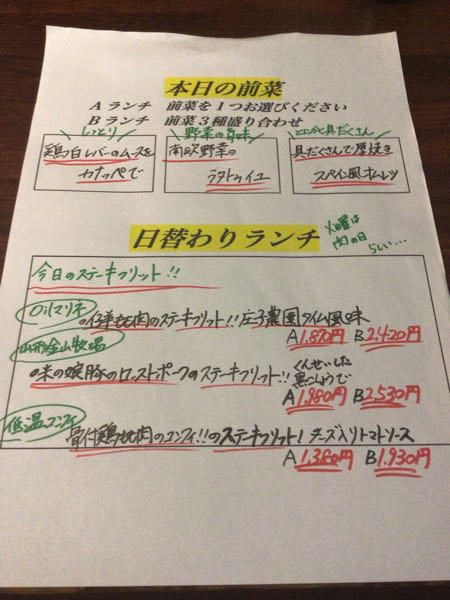 本日の前菜
Aランチ 前菜を1つお選びください
Bランチ 前菜3種盛り合わせ
しっとり
鶏白レバーのムースを
カナッペで
野菜の旨味
南欧野菜の
ラタトゥイユ
とにかく具だくさん
具だくさんで厚焼き
スペイン風オムレツ
日替わりランチ
火曜は
肉の日
らしい…
今日のステーキフリット!!
Oilマリネ
仔羊もも肉のステーキフリット!! 庄子農園タイム風味
A1,870円 B2,420円
山形金山牧場
米の娘豚のローストポークのステーキフリット!! くんせいした
黒こしょうで
A1,980円 B2,530円
低温コンフィ
骨付鶏もも肉のコンフィ!!のステーキフリット! チーズ入りトマトソース
A1,380円 B1,930円